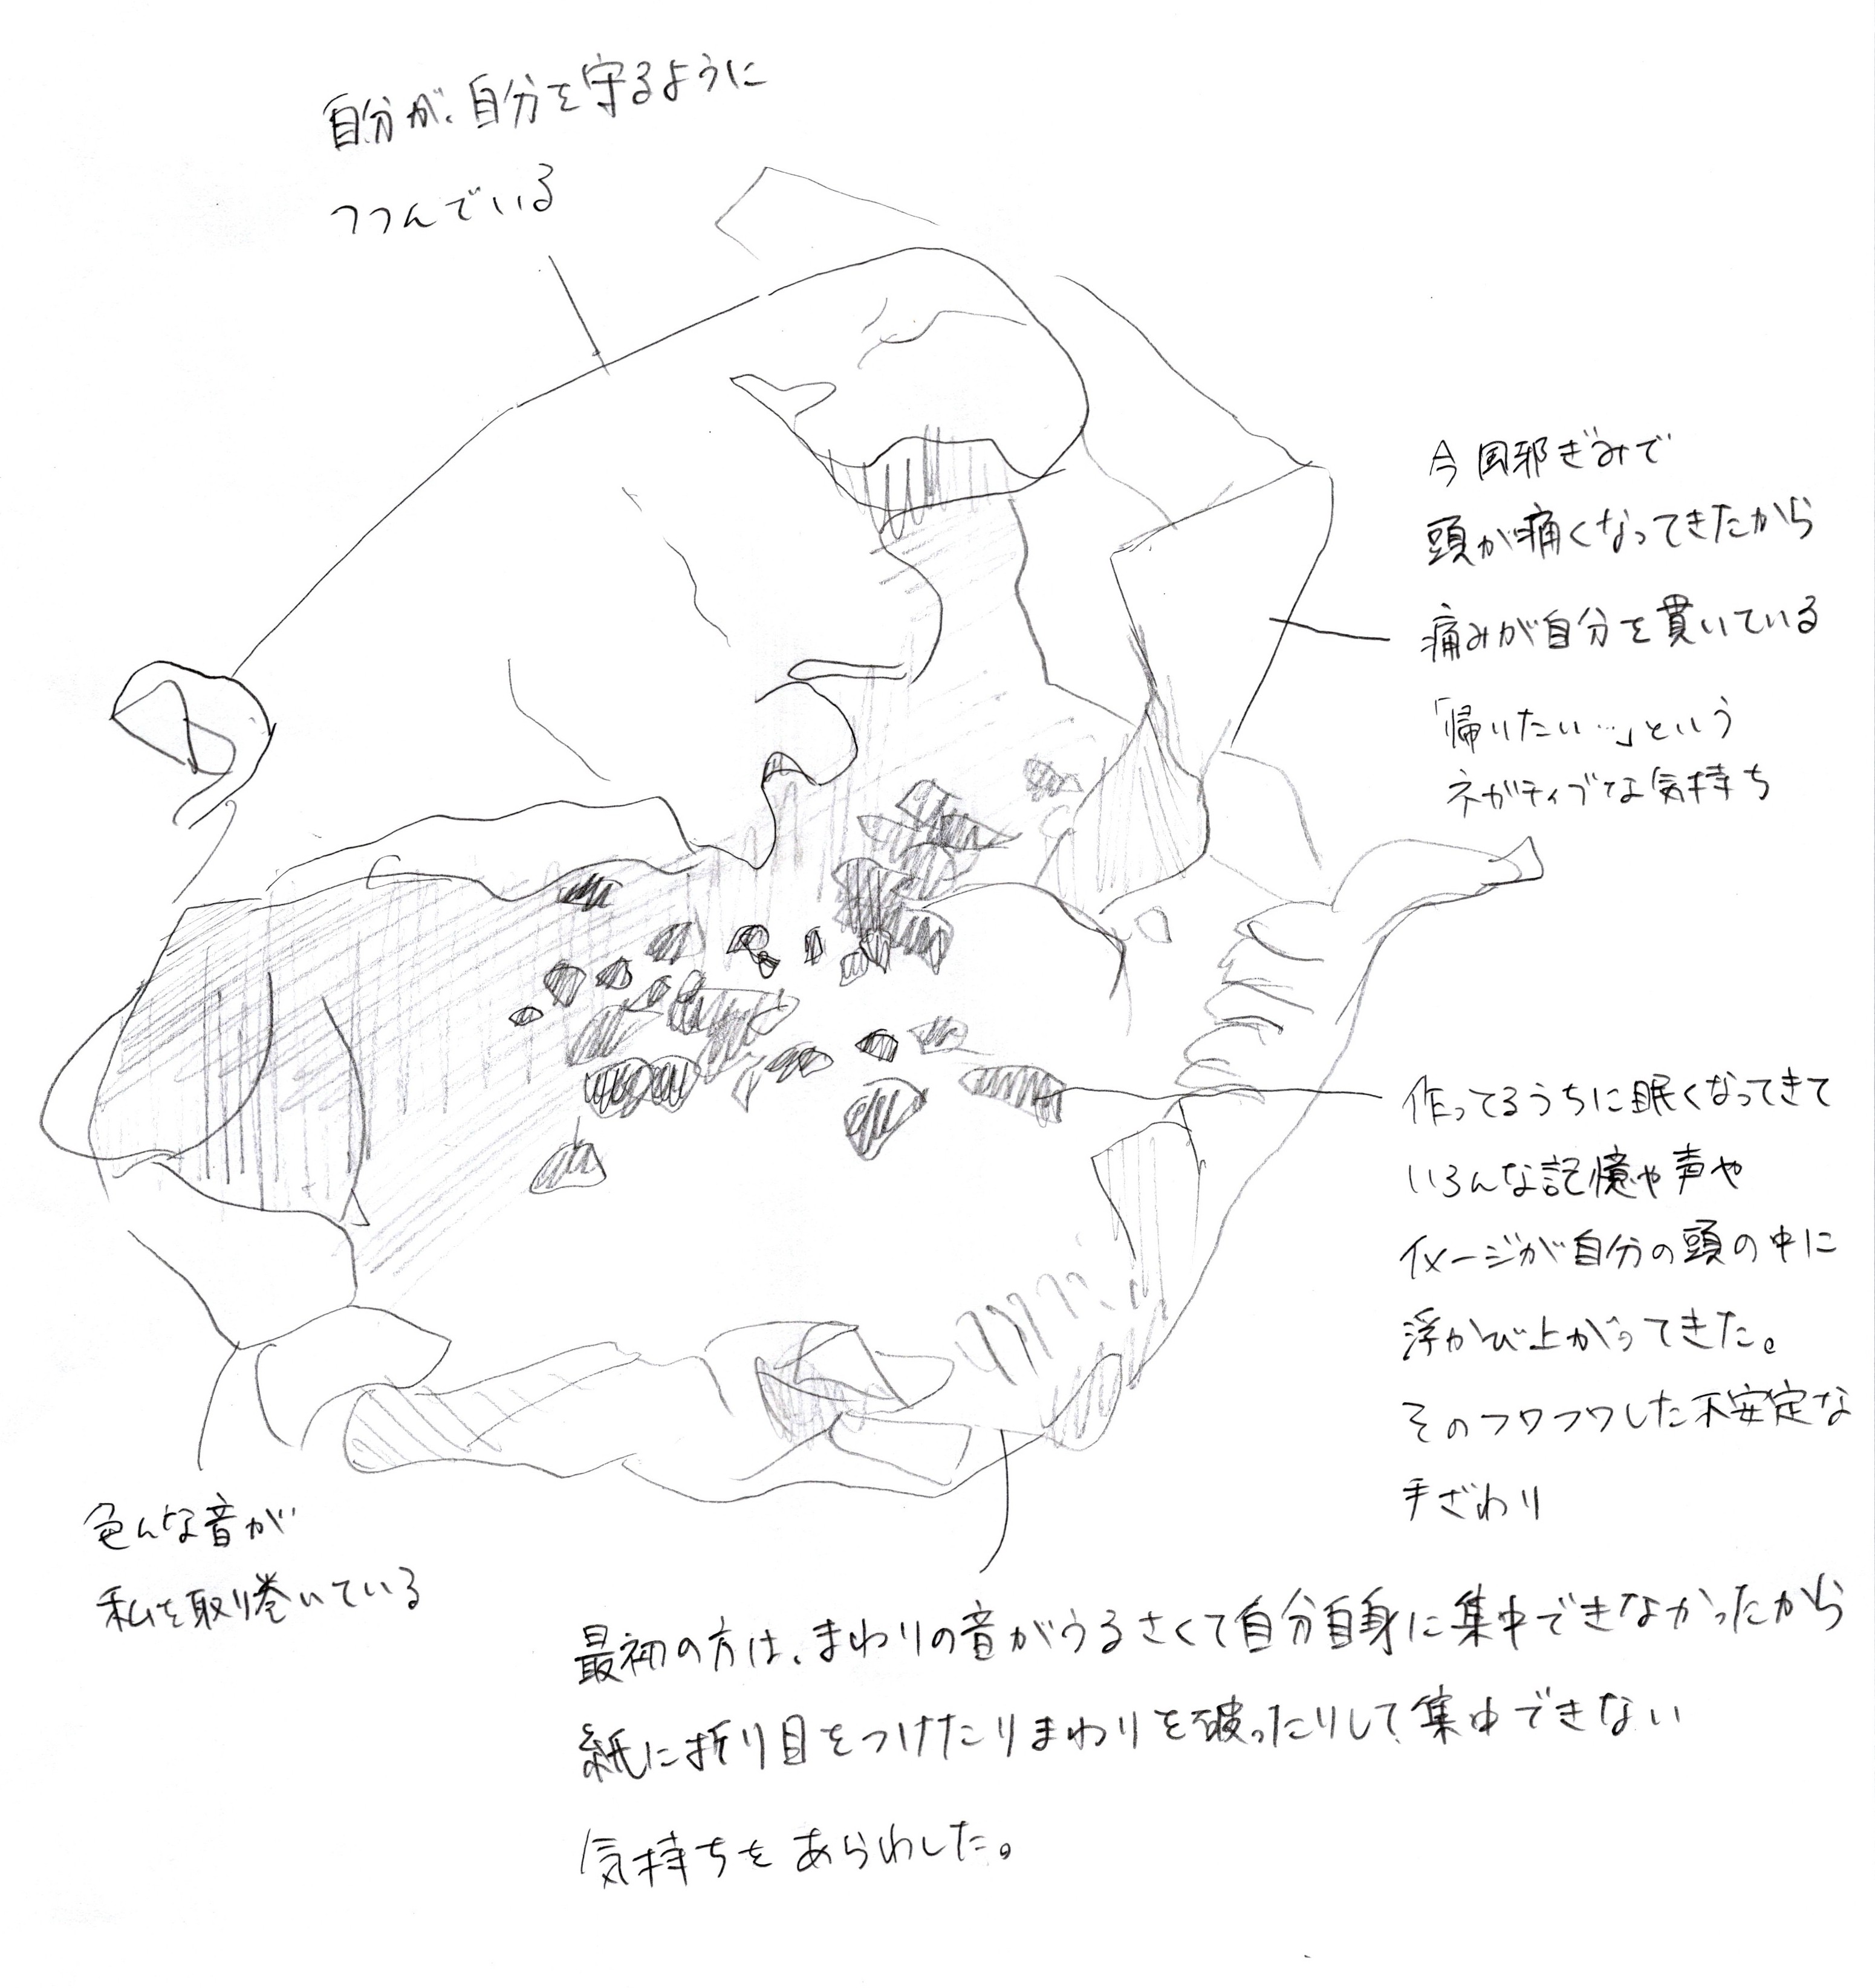 自分が、自分を守るように
つつんでいる
今風邪ぎみで
頭が痛くなってきたから
痛みが自分を貫いている
「帰りたい…」という
ネガティブな気持ち
作ってるうちに眠くなってきて
いろんな記憶や声や
イメージが自分の頭の中に
浮かび上がってきた。
そのフワフワした不安定な
手ざわり
色んな音が
私を取り巻いている
最初の方は、まわりの音がうるさくて自分自身に集中できなかったから
紙に折り目をつけたりまわりを破ったりして集中できない
気持ちをあらわした。